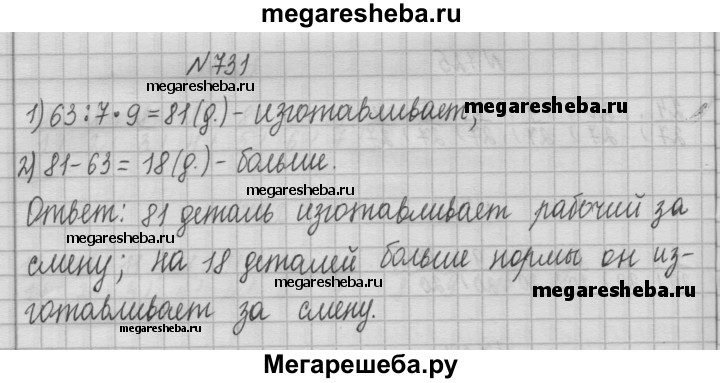 megaresheba.ru
№731
megaresheba.ru
1) 63:7·9=81(д.)- изготавливает;
megaresheba.ru
2) 81-63=18(д.)- больше.
megaresheba.ru
Ответ: 81 деталь изготавливает рабочий за
megaresheba.ru
смену; на 18 деталей больше нормы он из-
megaresheba.ru
megaresheba.ru
готавливает за смену.
megaresheba.ru
Мегарешеба.ру